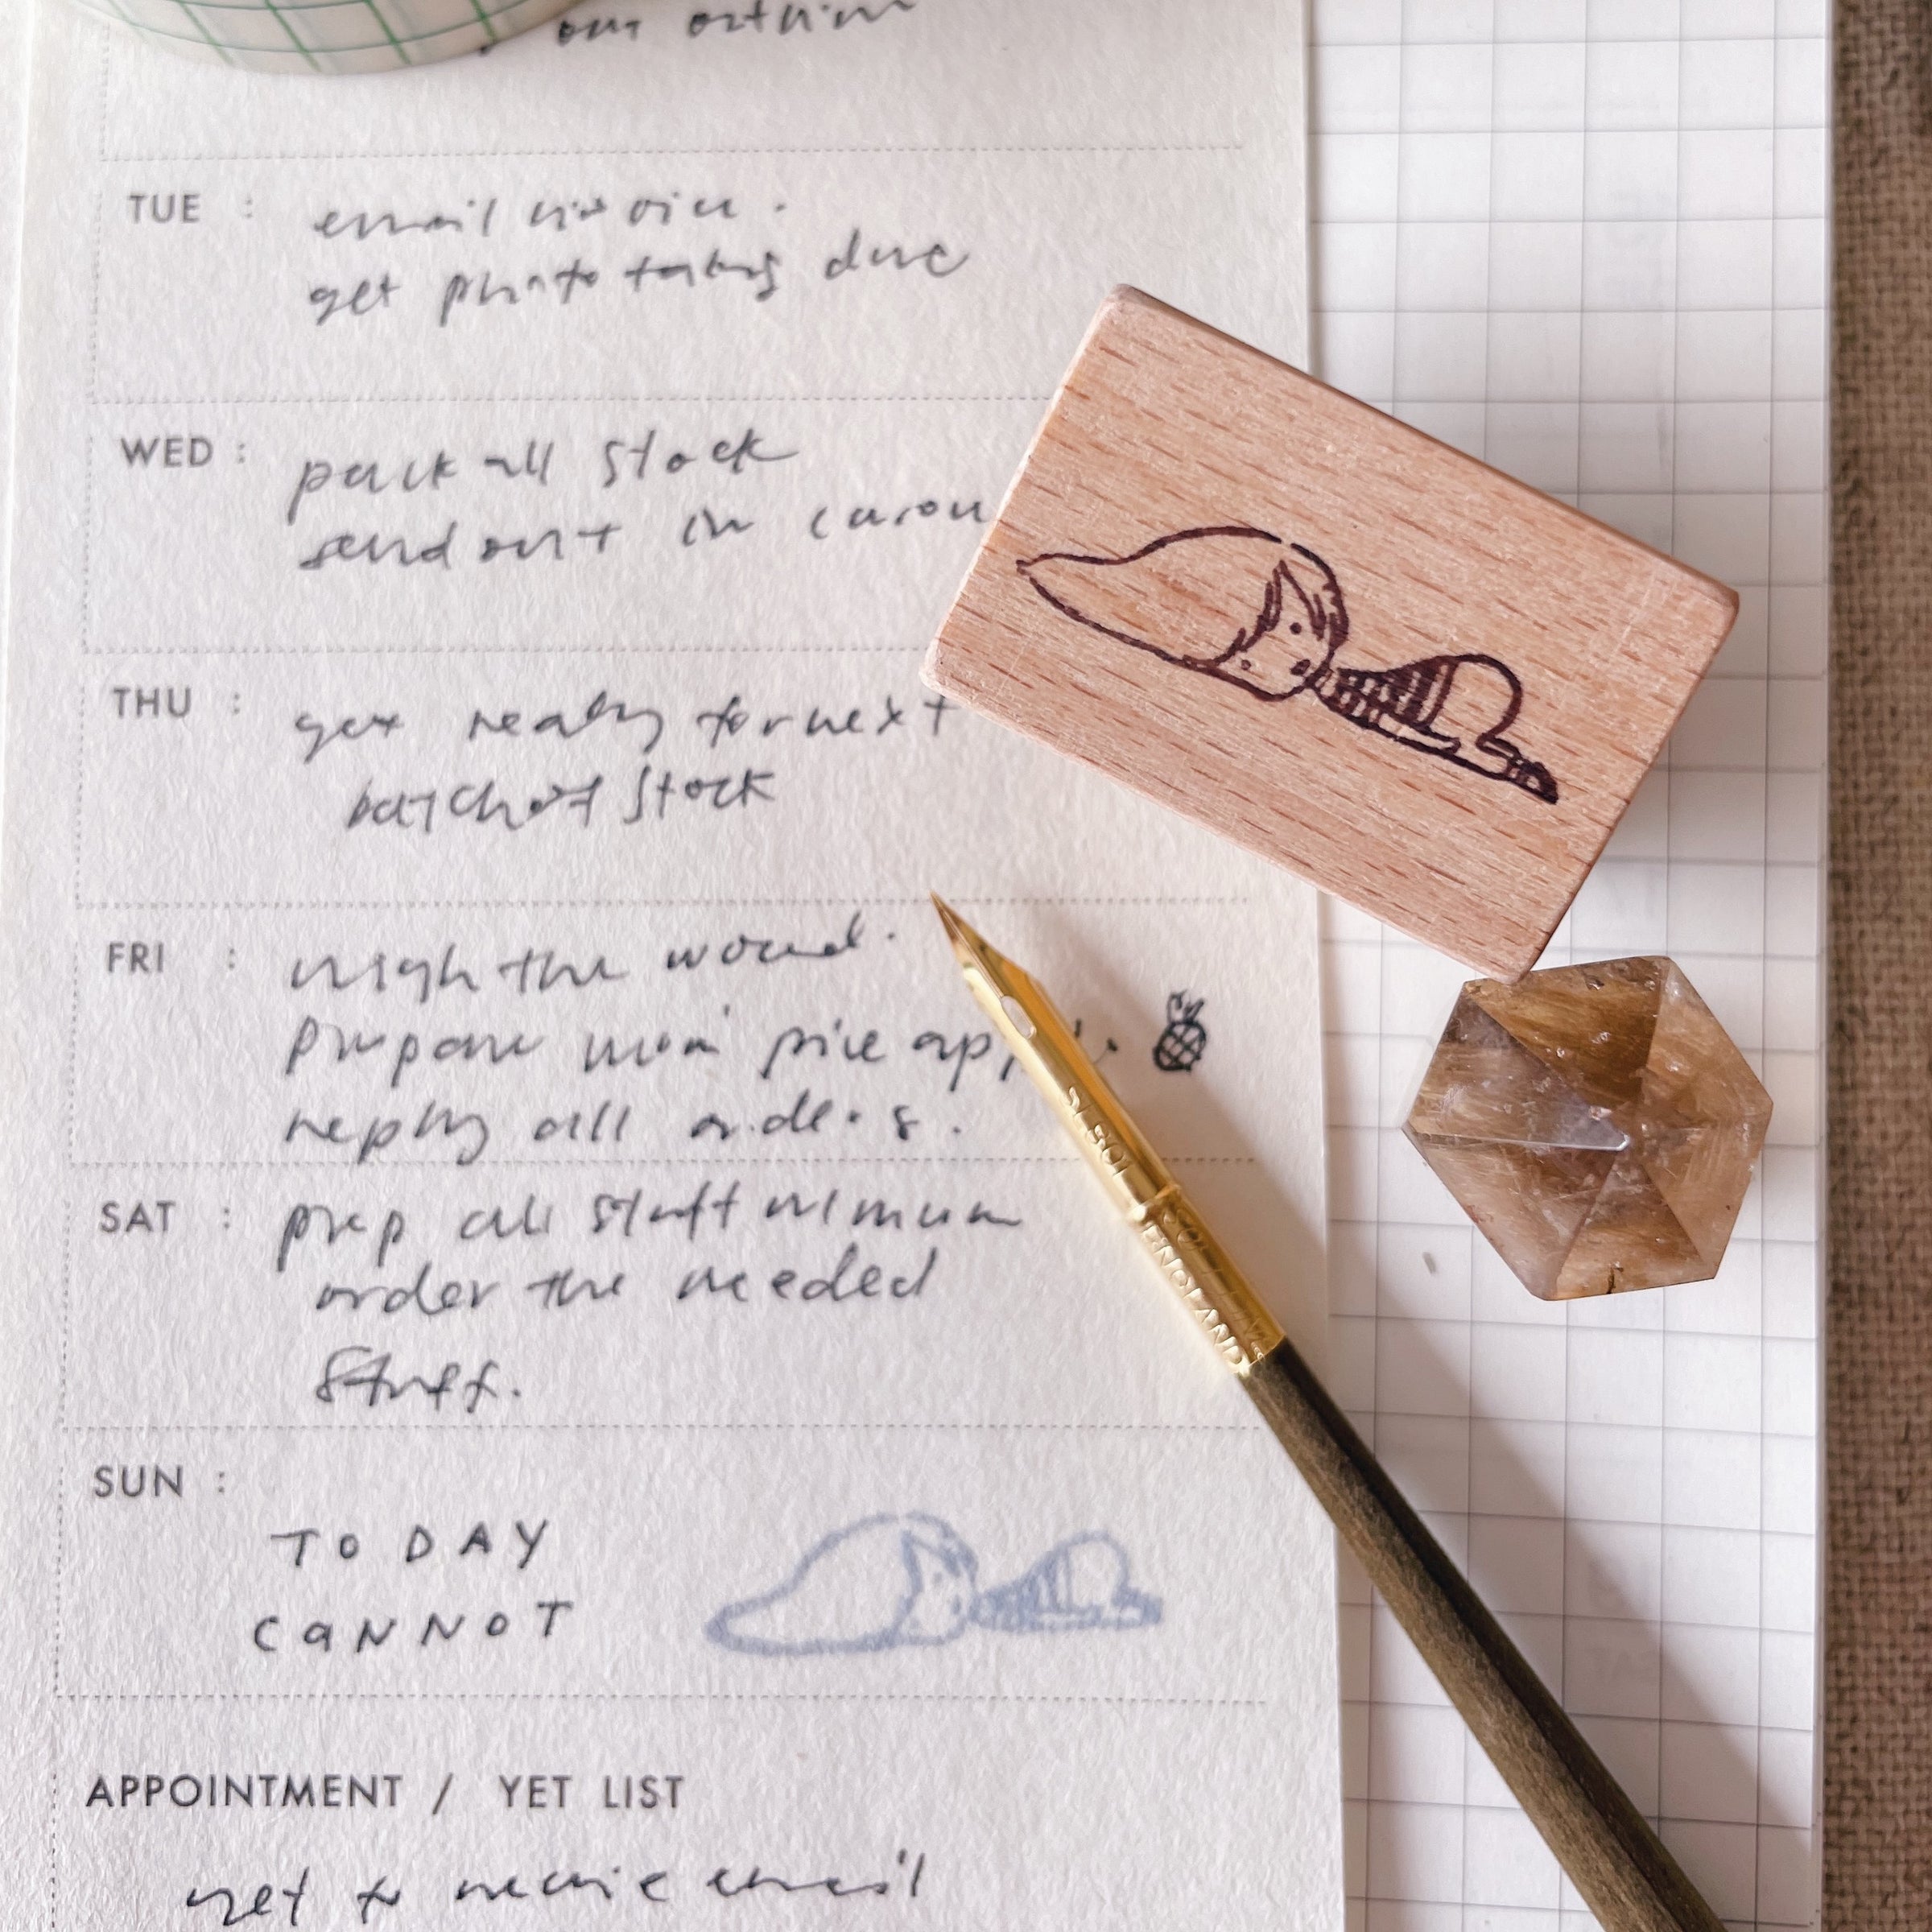 out
TUE :
email invoice.
get photo taking done
WED :
pack all stock
send out in
THU :
get ready for next
batch of stock
FRI :
the wound.
prepare mom pine
reply all orders.
SAT :
prep all stuff
order the needed
stuff.
SUN :
TODAY
CANNOT
APPOINTMENT / YET LIST
yet to receive email
ENGLAND